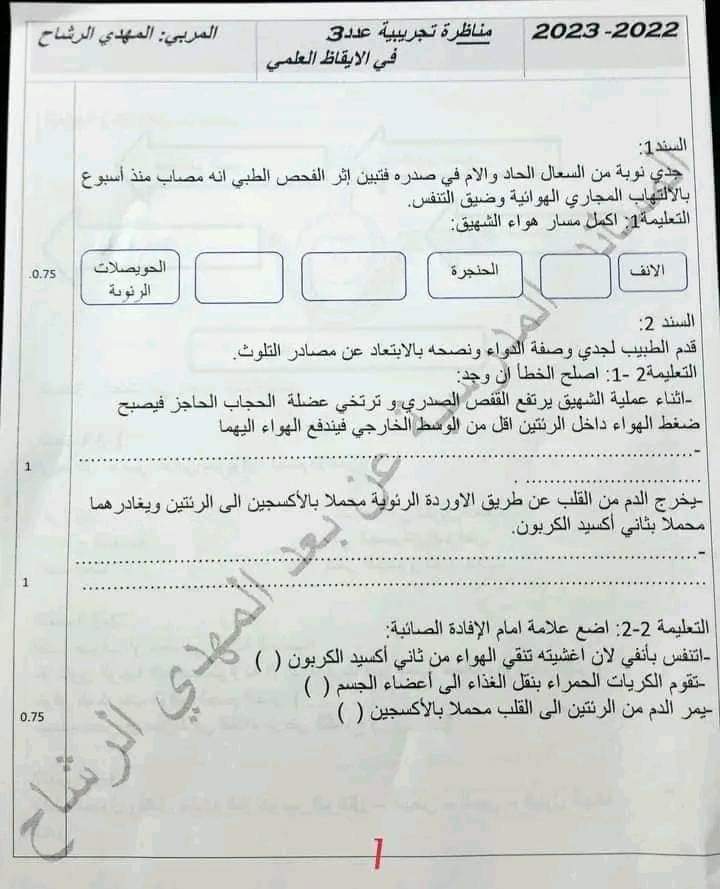 2023-2022
مناظرة تجريبية عدد3
في الايقاظ العلمي
المربي: المهدي الرشاح
السند1:
جدي نوبة من السعال الحاد والام في صدره فتبين إثر الفحص الطبي انه مصاب منذ أسبوع
بالالتهاب المجاري الهوائية وضيق التنفس.
التعليمة1: اكمل مسار هواء الشهيق:
الانف
الحنجرة
الحويصلات
الرئوية
0.75.
السند 2:
قدم الطبيب لجدي وصفة الدواء ونصحه بالابتعاد عن مصادر التلوث.
التعليمة2 -1: اصلح الخطأ ان وجد:
-اثناء عملية الشهيق يرتفع القفص الصدري و ترتخي عضلة الحجاب الحاجز فيصبح
ضغط الهواء داخل الرئتين اقل من الوسط الخارجي فيندفع الهواء اليهما
1
-يخرج الدم من القلب عن طريق الاوردة الرئوية محملا بالأكسجين الى الرئتين ويغادرهما
محملا بثاني أكسيد الكربون.
1
التعليمة 2-2: اضع علامة امام الإفادة الصائبة:
-اتنفس بأنفي لان اغشيته تنقي الهواء من ثاني أكسيد الكربون ( )
-تقوم الكريات الحمراء بنقل الغذاء الى أعضاء الجسم ( )
-يمر الدم من الرئتين الى القلب محملا بالأكسجين ( )
0.75
المدرسية عن بعد المهدي الرشاح
1